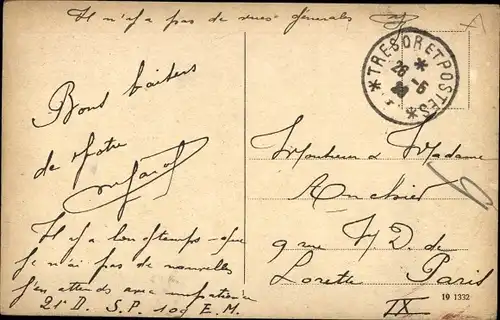 Il n'y a pas de vues générales
* TRESOR ET POSTES *
28 -6
Bons baisers
de votre
Monsieur & Madame
9 rue N. D. de
Lorette Paris
IX
Il y a longtemps que
je n'ai pas de nouvelles
j'en attends avec impatience
21e D. S. P. 109 E. M.
19 1332